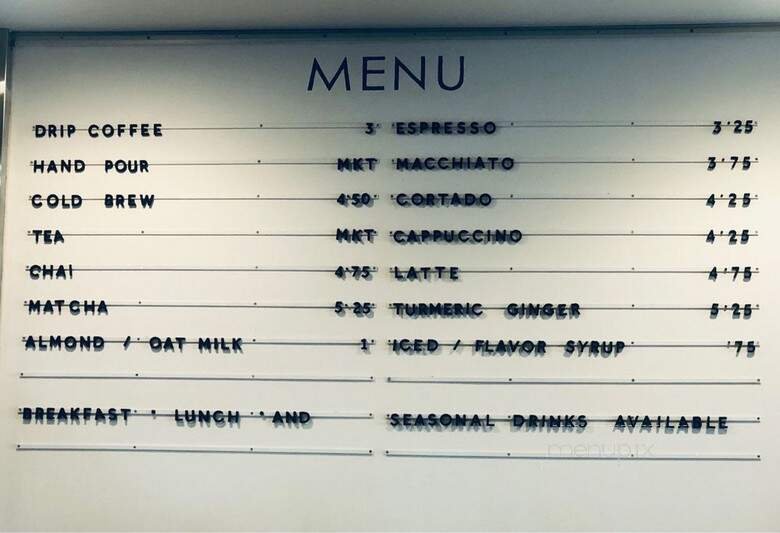 MENU
DRIP COFFEE 3
HAND POUR MKT
COLD BREW 4'50
TEA MKT
CHAI 4'75
MATCHA 5'25
ALMOND / OAT MILK 1
BREAKFAST ' LUNCH ' AND
ESPRESSO 3'25
MACCHIATO 3'75
CORTADO 4'25
CAPPUCCINO 4'25
LATTE 4'75
TURMERIC GINGER 5'25
ICED / FLAVOR SYRUP '75
SEASONAL DRINKS AVAILABLE
menupix